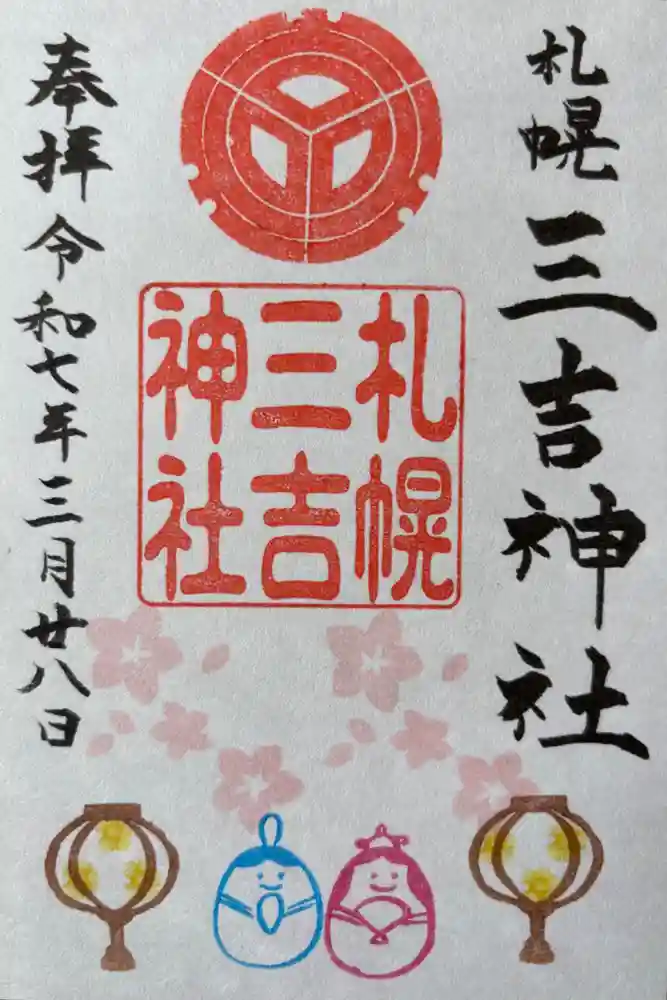 札幌 三吉神社
札幌
三吉
神社
奉拝 令和七年三月廿八日